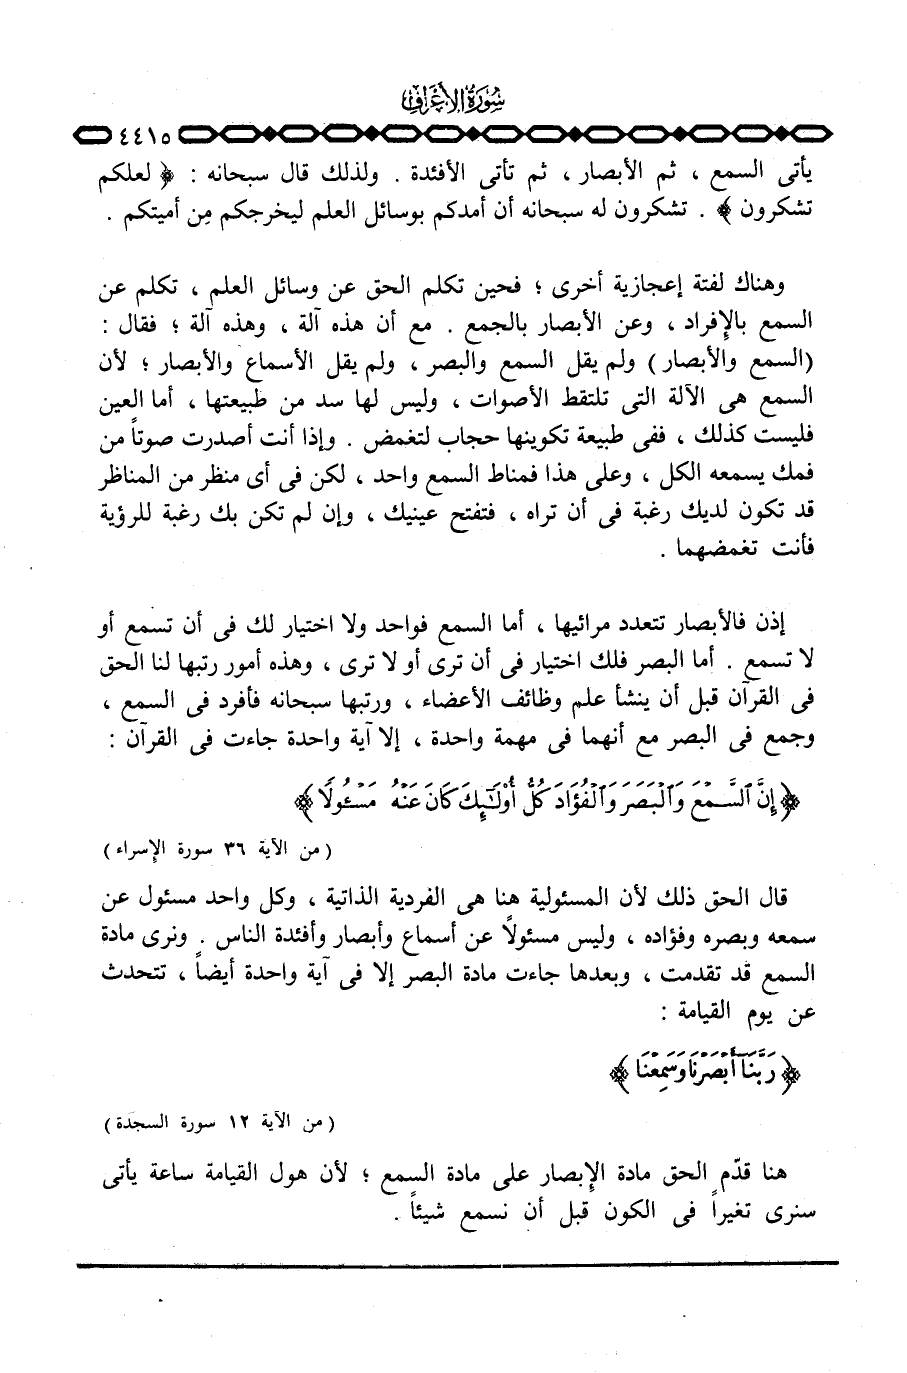 سورة الأعراف
٤٤١٥
يأتى السمع ، ثم الأبصار ، ثم تأتى الأفئدة . ولذلك قال سبحانه : ﴿ لعلكم
تشكرون ﴾ . تشكرون له سبحانه أن أمدكم بوسائل العلم ليخرجكم مِن أميتكم .
وهناك لفتة إعجازية أخرى ؛ فحين تكلم الحق عن وسائل العلم ، تكلم عن
السمع بالإفراد ، وعن الأبصار بالجمع . مع أن هذه آلة ، وهذه آلة ؛ فقال :
(السمع والأبصار) ولم يقل السمع والبصر ، ولم يقل الأسماع والأبصار ؛ لأن
السمع هى الآلة التى تلتقط الأصوات ، وليس لها سد من طبيعتها ، أما العين
فليست كذلك ، ففى طبيعة تكوينها حجاب لتغمض . وإذا أنت أصدرت صوتاً من
فمك يسمعه الكل ، وعلى هذا فمناط السمع واحد ، لكن فى أى منظر من المناظر
قد تكون لديك رغبة فى أن تراه ، فتفتح عينيك ، وإن لم تكن بك رغبة للرؤية
فأنت تغمضهما .
إذن فالأبصار تتعدد مرائيها ، أما السمع فواحد ولا اختيار لك فى أن تسمع أو
لا تسمع . أما البصر فلك اختيار فى أن ترى أو لا ترى ، وهذه أمور رتبها لنا الحق
فى القرآن قبل أن ينشأ علم وظائف الأعضاء ، ورتبها سبحانه فأفرد فى السمع ،
وجمع فى البصر مع أنهما فى مهمة واحدة ، إلا آية واحدة جاءت فى القرآن :
﴿ إِنَّ ٱلسَّمْعَ وَٱلْبَصَرَ وَٱلْفُؤَادَ كُلُّ أُوْلَٰٓئِكَ كَانَ عَنْهُ مَسْـُٔولًا ﴾
( من الآية ٣٦ سورة الإسراء )
قال الحق ذلك لأن المسئولية هنا هى الفردية الذاتية ، وكل واحد مسئول عن
سمعه وبصره وفؤاده ، وليس مسئولاً عن أسماع وأبصار وأفئدة الناس . ونرى مادة
السمع قد تقدمت ، وبعدها جاءت مادة البصر إلا فى آية واحدة أيضاً ، تتحدث
عن يوم القيامة :
﴿ رَبَّنَآ أَبْصَرْنَا وَسَمِعْنَا ﴾
( من الآية ١٢ سورة السجدة )
هنا قدّم الحق مادة الإبصار على مادة السمع ؛ لأن هول القيامة ساعة يأتى
سنرى تغيراً فى الكون قبل أن نسمع شيئاً .